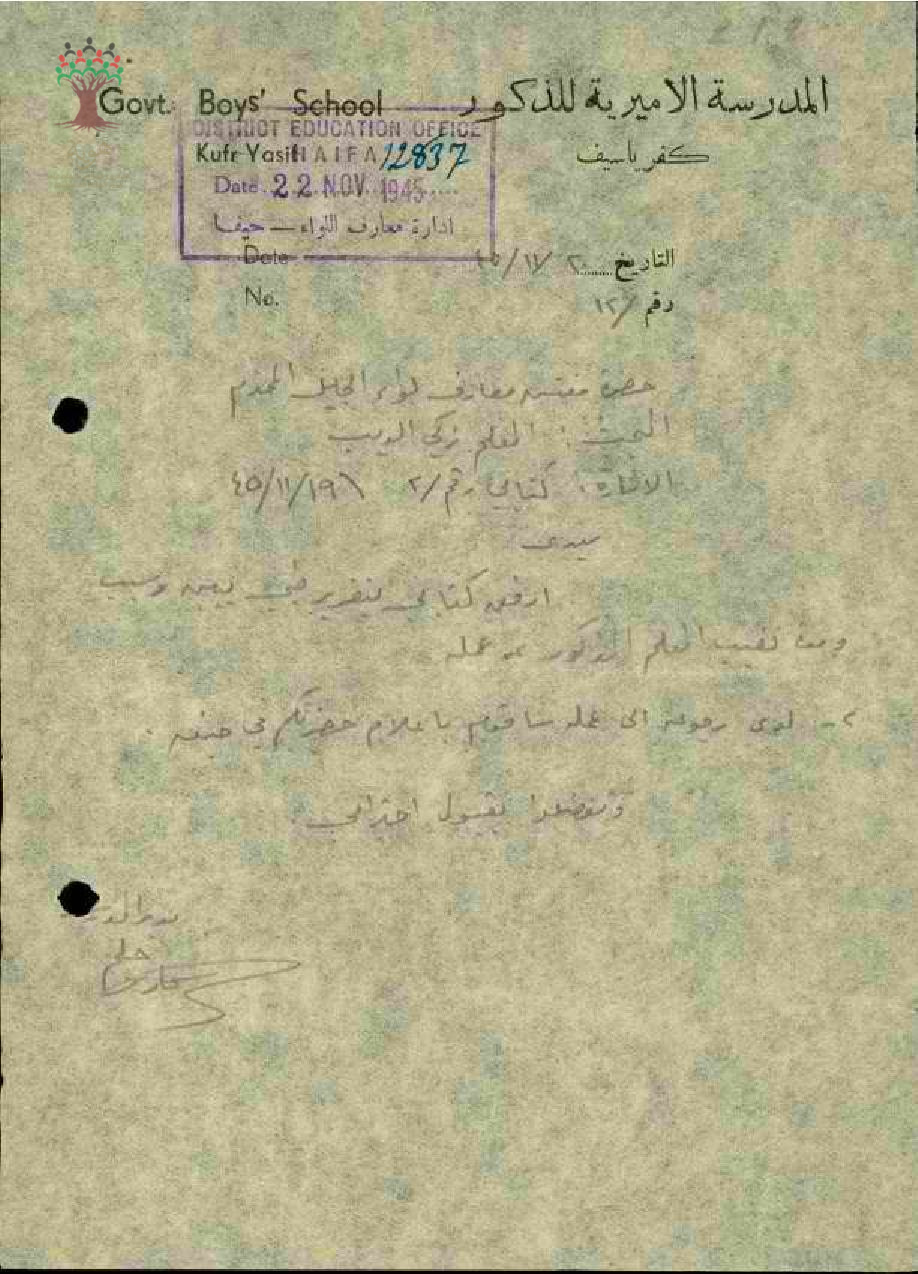 Govt. Boys' School المدرسة الاميرية للذكور
DISTRICT EDUCATION OFFICE
Kufr Yasif HAIFA 12837 كفر ياسيف
Date 22 NOV 1945
ادارة معارف اللواء – حيفا
Date التاريخ ٢٠/١١/٤٥
No. رقم /١٢
حضرة مفتش معارف لواء الجليل المحترم
البحث : المعلم زكي الديب
الاشارة : كتابي رقم /٢ ١٩/١١/٤٥
سيدي
ارفق كتابي بتقرير طبي يبين سبب
تغيب المعلم المذكور عن عمله
٢- لدى رجوعه الى عمله سأقوم باعلام حضرتكم في حينه .
وتفضلوا بقبول احترامي
مدير المدرسة